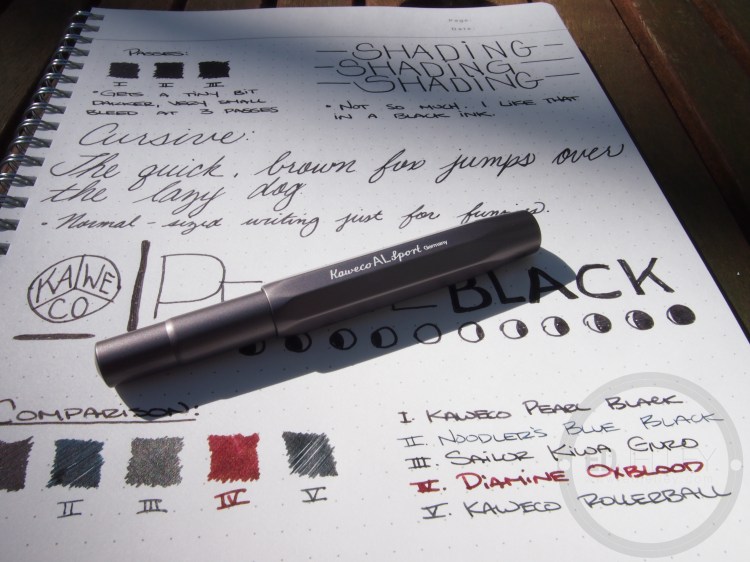 Page:
Date:
PASSES:
I II III
• GETS A TINY BIT
DARKER, VERY SMALL
BLEED AT 3 PASSES
SHADING
SHADING
SHADING
• NOT SO MUCH. I LIKE THAT
IN A BLACK INK.
Cursive:
The quick, brown fox jumps over
the lazy dog
• Normal-sized writing just for funsies.
Kaweco AL Sport Germany
KAWE
CO
BLACK
COMPARISON:
II III IV V
I. KAWECO PEARL BLACK
II. NOODLER'S BLUE BLACK
III. SAILOR KIWA GURO
IV. DIAMINE OXBLOOD
V. KAWECO ROLLERBALL